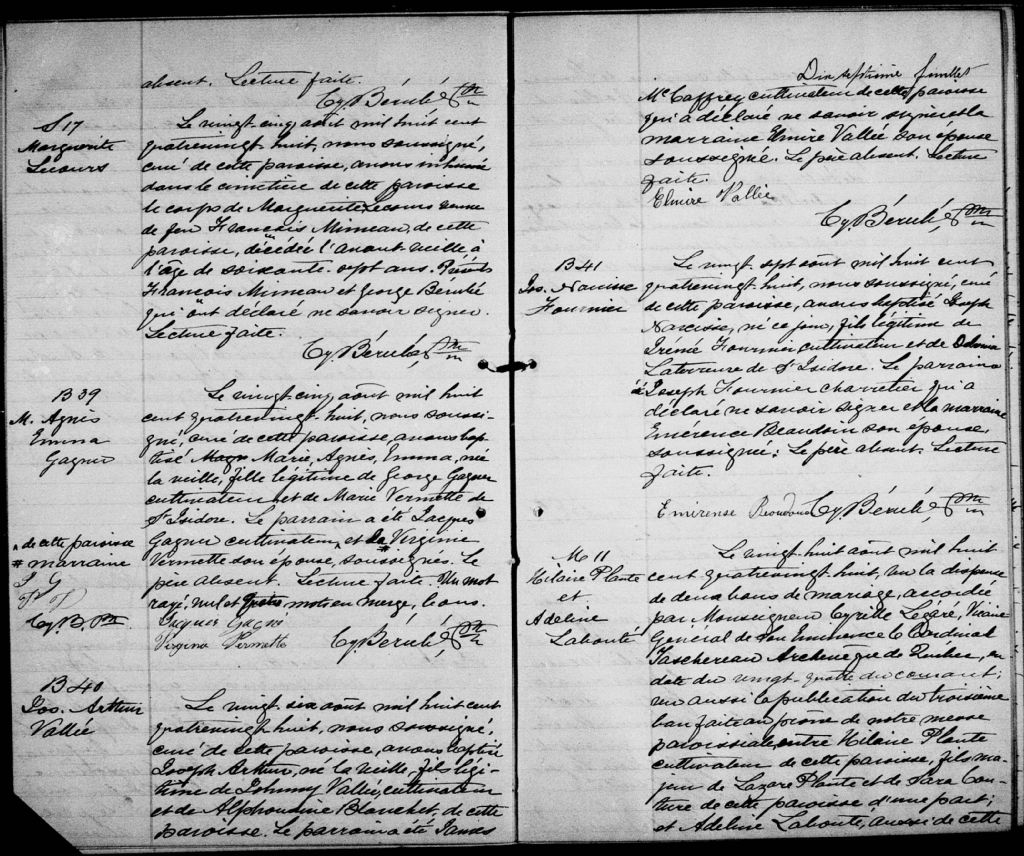 absent. Lecture faite.
Cy. Bérubé, Ptre
S 17
Marguerite
Lecours
Le vingt cinq août mil huit cent
quatrevingt huit, nous soussigné,
curé de cette paroisse, avons inhumé
dans le cimetière de cette paroisse
le corps de Marguerite Lecours veuve
de feu François Mimeau, de cette
paroisse, décédée l'avant veille à
l'âge de soixante-sept ans. Présents
François Mimeau et George Berubé
qui ont déclaré ne savoir signer.
Lecture faite.
Cy. Bérubé, Ptre
B 39
M. Agnès
Emma
Gagner
Le vingt cinq août mil huit
cent quatrevingt huit, nous soussi-
gné, curé de cette paroisse, avons bap-
tisé Marie, Agnès, Emma, née
la veille, fille légitime de George Gagner
cultivateur et de Marie Vermette de
St Isidore. Le parrain a été Jacques
Gagner cultivateur, et la # Virginie
Vermette son épouse, soussignés. Le
père absent. Lecture faite. Un mot
rayé, nul et quatre mots en marge, bons.
de cette paroisse
# marraine
J. G
Cy. B. Ptre
Jacques Gagné
Virginie Vermette
Cy. Bérubé, Ptre
B 40
Jos. Arthur
Vallée
Le vingt-six août mil huit cent
quatrevingt huit, nous soussigné,
curé de cette paroisse, avons baptisé
Joseph Arthur, né la veille, fils légi-
time de Johnny Vallée, cultivateur
et de Alphonsine Blanchet, de cette
paroisse. Le parrain a été James
Dix septième feuillet
McCaffrey cultivateur de cette paroisse
qui a déclaré ne savoir signer et la
marraine Elmire Vallée son épouse
soussignée. Le père absent. Lecture
faite.
Elmire Vallée
Cy. Bérubé, Ptre
B 41
Jos. Narcisse
Fournier
Le vingt-sept août mil huit cent
quatrevingt huit, nous soussigné, curé
de cette paroisse, avons baptisé Joseph
Narcisse, né ce jour, fils légitime de
Irénée Fournier cultivateur et de
Latoureuse de St Isidore. Le parrain
Joseph Fournier charretier qui a
déclaré ne savoir signer et la marraine
Emérence Beaudoin son épouse,
soussignée: Le père absent. Lecture
faite.
Emirense Cy. Bérubé, Ptre
M 11
Hilaire Plante
et
Adeline
Labonté
Le vingt huit août mil huit
cent quatrevingt huit, vu la dispense
de deux bans de mariage, accordée
par Monseigneur Cyrille Légaré, Vicaire
Général de Son Eminence le Cardinal
Taschereau Archevêque de Québec, en
date du vingt-quatre du courant;
vu aussi la publication du troisième
ban faite au prône de notre messe
paroissiale, entre Hilaire Plante
cultivateur de cette paroisse, fils ma-
jeur de Lazare Plante et de Sara Cou-
ture de cette paroisse d'une part;
et Adeline Labonté, aussi de cette